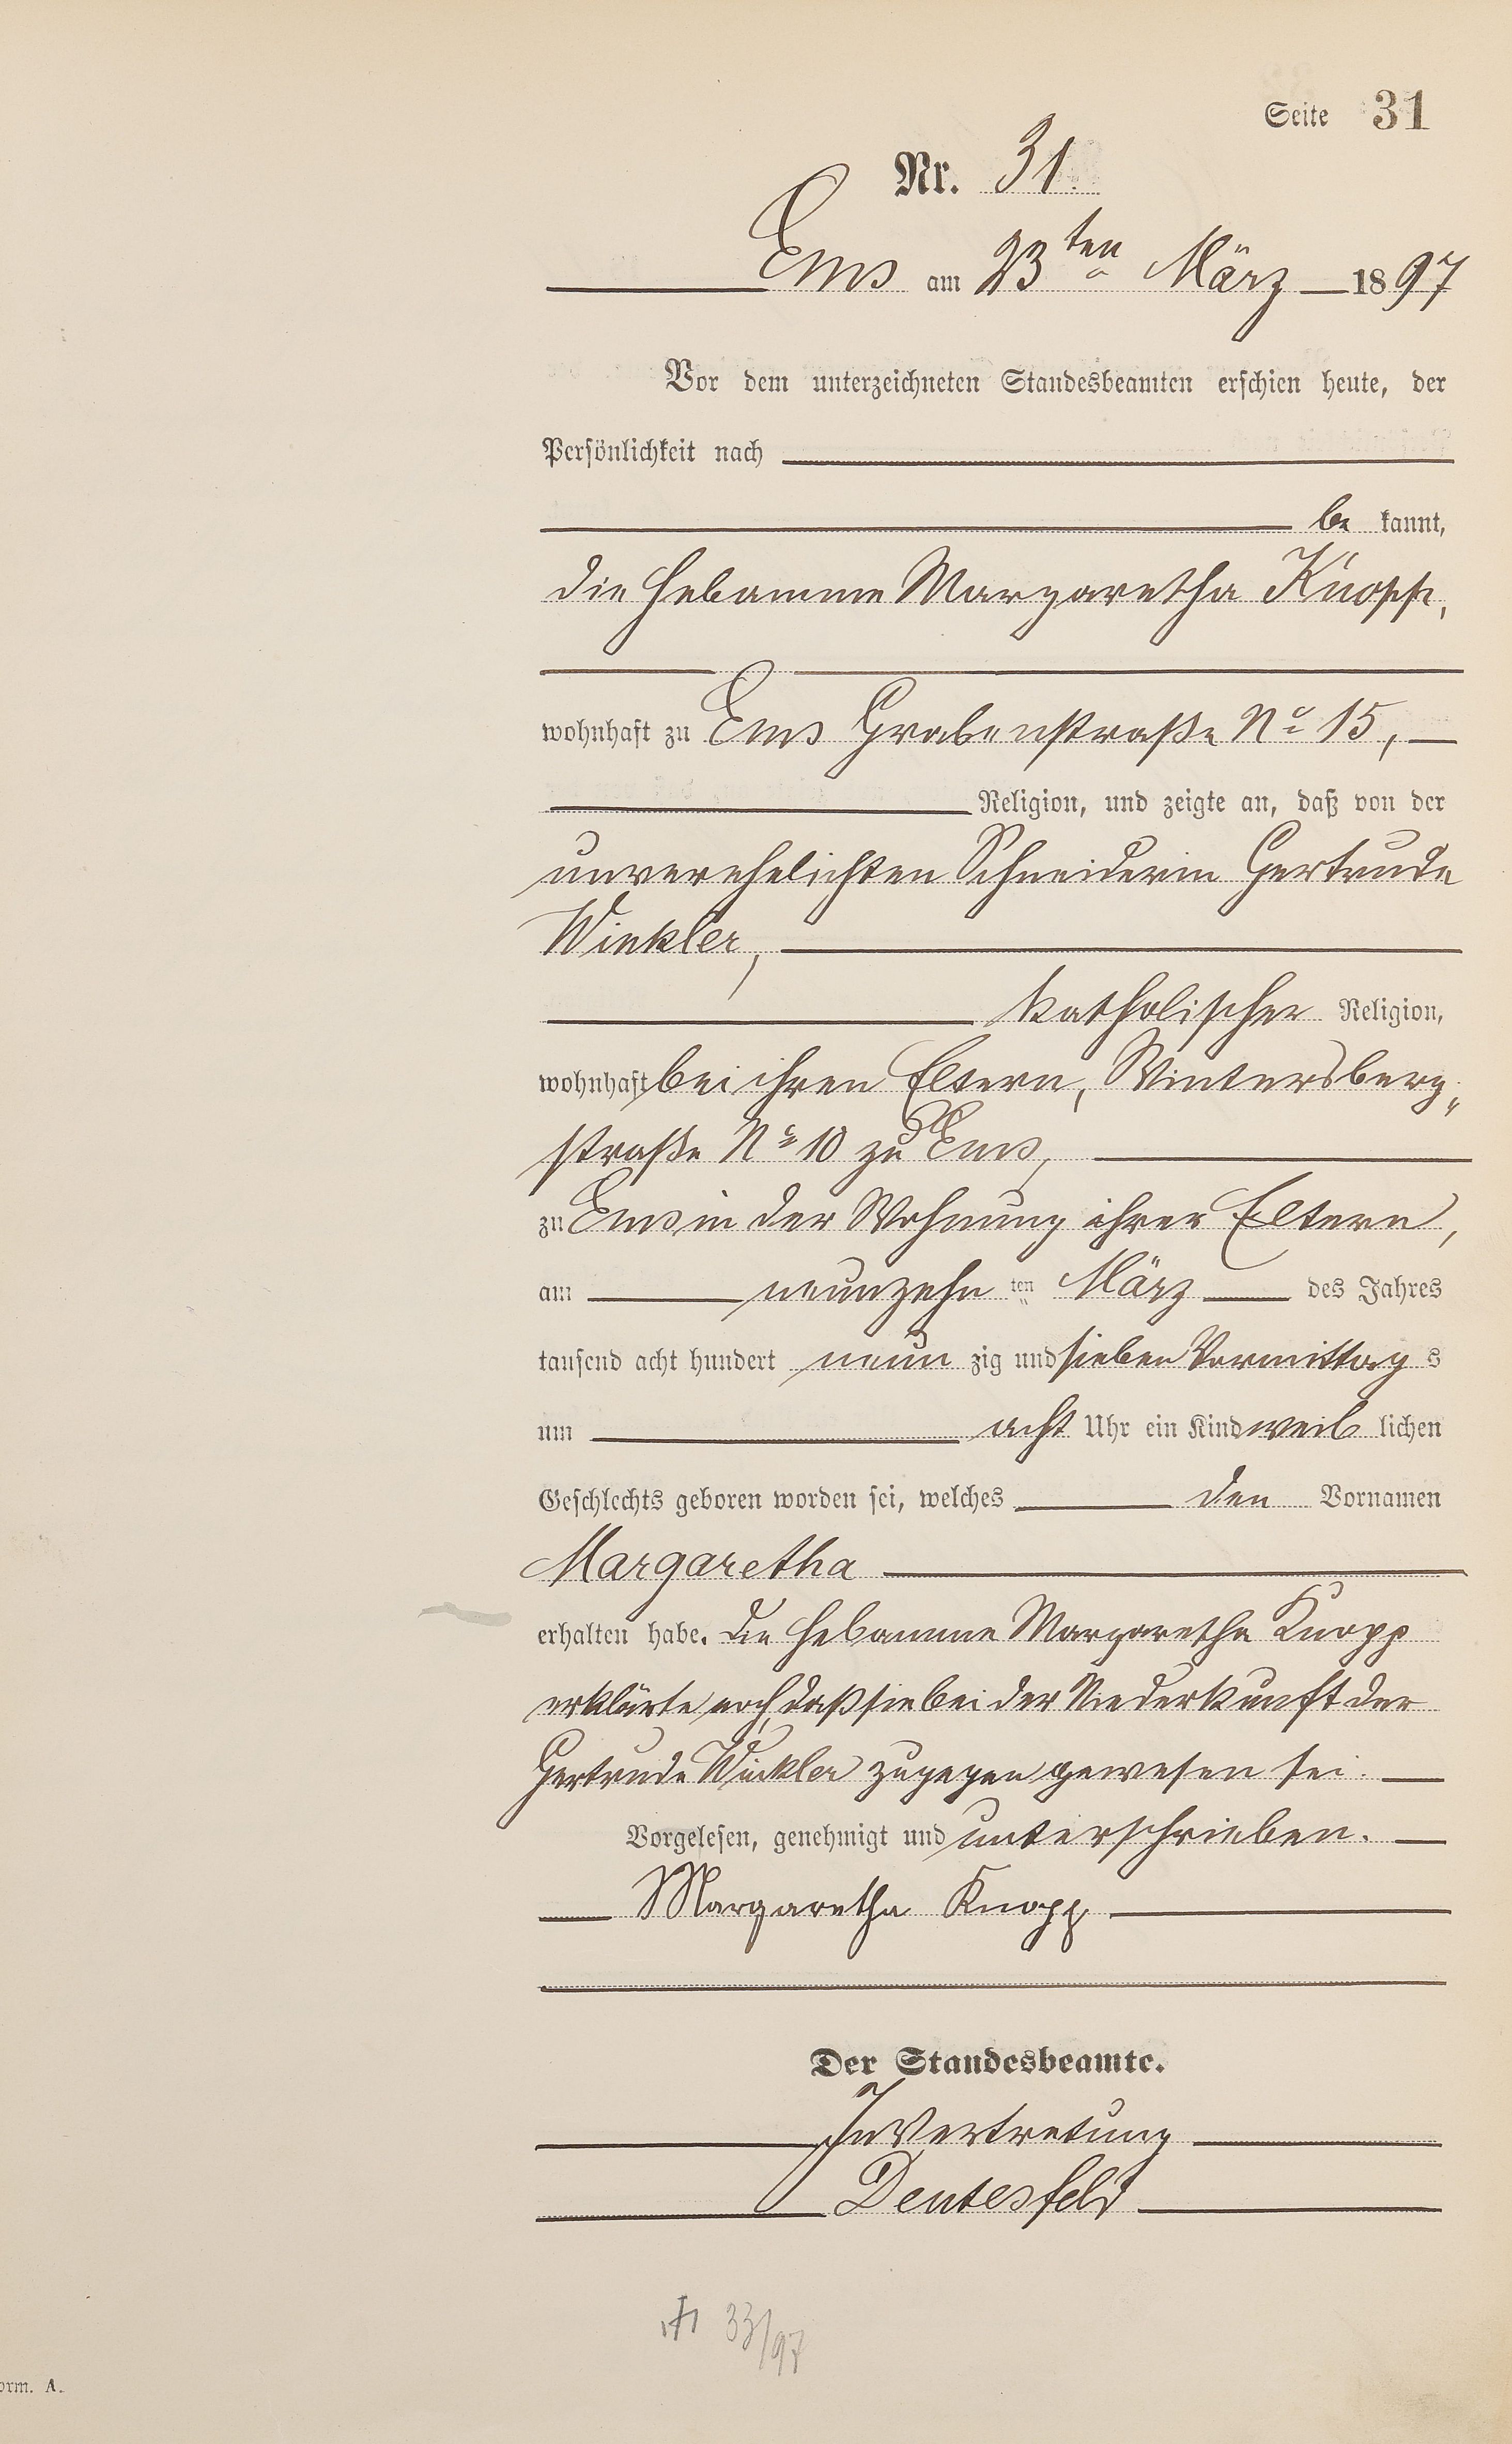 Seite 31
Nr. 31.
Ems am 23ten März 1897
Vor dem unterzeichneten Standesbeamten erschien heute, der
Persönlichkeit nach
be kannt,
die Hebamme Margaretha Knopp,
wohnhaft zu Ems Grabenstraße No 15,
Religion, und zeigte an, daß von der
unverehelichten Schneiderin Gertrude
Winkler,
katholischer Religion,
wohnhaft bei ihren Eltern, Wintersberg„
straße No 10 zu Ems,
zu Ems in der Wohnung ihrer Eltern,
am neunzehn ten März des Jahres
tausend acht hundert neun zig und sieben Vormittag s
um acht Uhr ein Kind weib lichen
Geschlechts geboren worden sei, welches den Vornamen
Margaretha
erhalten habe. Die Hebamme Margaretha Knopp
erklärte noch, daß sie bei der Niederkunft der
Gertrude Winkler zugegen gewesen sei.
Vorgelesen, genehmigt und unterschrieben.
Margaretha Knopp
Der Standesbeamte.
In Vertretung
Deutesfeld
33/97
orm. A.